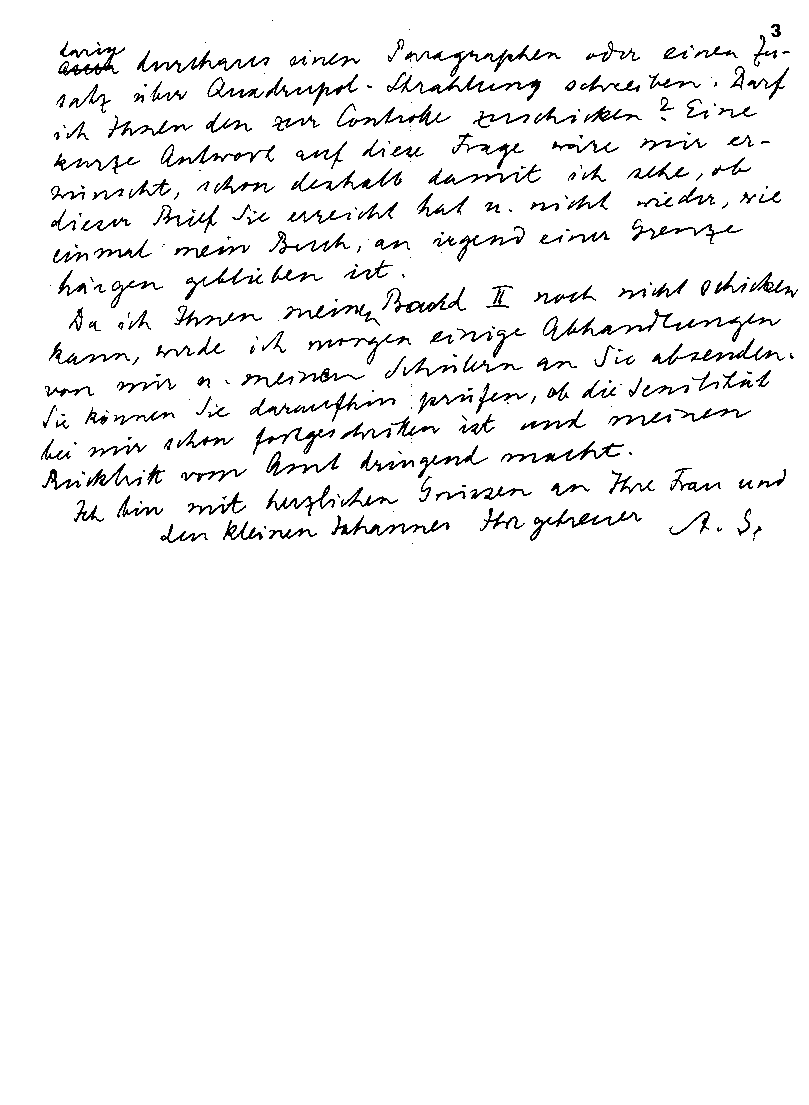 3
darin
auch durchaus einen Paragraphen oder einen Zu-
satz über Quadrupol-Strahlung schreiben. Darf
ich Ihnen den zur Controlle zuschicken? Eine
kurze Antwort auf diese Frage wäre mir er-
wünscht, schon deshalb damit ich sehe, ob
dieser Brief Sie erreicht hat u. nicht wieder, wie
einmal mein Buch, an irgend einer Grenze
hängen geblieben ist.
Da ich Ihnen meinen Band II noch nicht schicken
kann, werde ich morgen einige Abhandlungen
von mir u. meinen Schülern an Sie absenden.
Sie können Sie daraufhin prüfen, ob die Senilität
bei mir schon fortgeschritten ist und meinen
Rücktritt vom Amt dringend macht.
Ich bin mit herzlichen Grüssen an Ihre Frau und
den kleinen Johannes Ihr getreuer A. S.